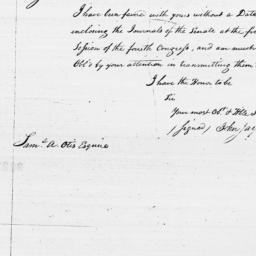 I have been favor'd with yours without a Date
inclosing the Journals of the Senate at the fir
Session of the fourth Congress, and am much
Obl'd by your attention in transmitting them
I have the Honor to be
Sir
Your most Ob. & Hble
(signed) John Jay
Sam.l A. Otis Esquire